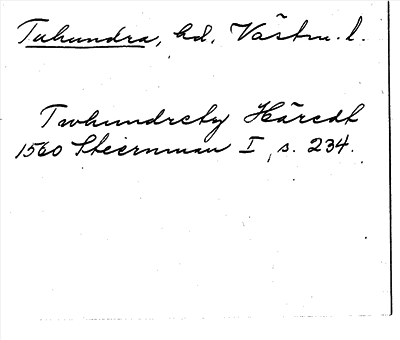 Tuhundra, hd, Västm. l.
Twhundrety Häredt
1560 Stiernman I, s. 234.